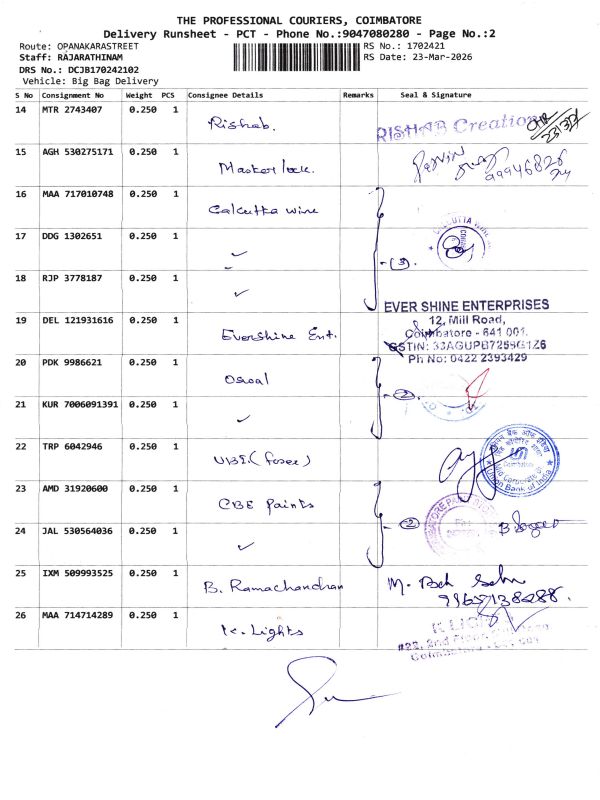 THE PROFESSIONAL COURIERS, COIMBATORE
Delivery Runsheet - PCT - Phone No.:9047080280 - Page No.:2
Route: OPANAKARASTREET RS No.: 1702421
Staff: RAJARATHINAM RS Date: 23-Mar-2026
DRS No.: DCJB170242102
Vehicle: Big Bag Delivery
S No Consignment No Weight PCS Consignee Details Remarks Seal & Signature
14 MTR 2743407 0.250 1 Rishab. RISHAB Creation
15 AGH 530275171 0.250 1 Master lock.
16 MAA 717010748 0.250 1 Calcutta wine
17 DDG 1302651 0.250 1 ✓ (3) CALCUTTA WINE
18 RJP 3778187 0.250 1 ✓
EVER SHINE ENTERPRISES
12, Mill Road,
Coimbatore - 641 001.
GSTIN: 33AGUPB7259G1Z6
Ph No: 0422 2393429
19 DEL 121931616 0.250 1 Evershine Ent.
20 PDK 9986621 0.250 1
21 KUR 7006091391 0.250 1 ✓ (2)
22 TRP 6042946 0.250 1 Union Bank of India
23 AMD 31920600 0.250 1 CBE Paints
24 JAL 530564036 0.250 1 ✓ (2)
25 IXM 509993525 0.250 1 B. Ramachandran
26 MAA 714714289 0.250 1 K. Lights K LIGHTS